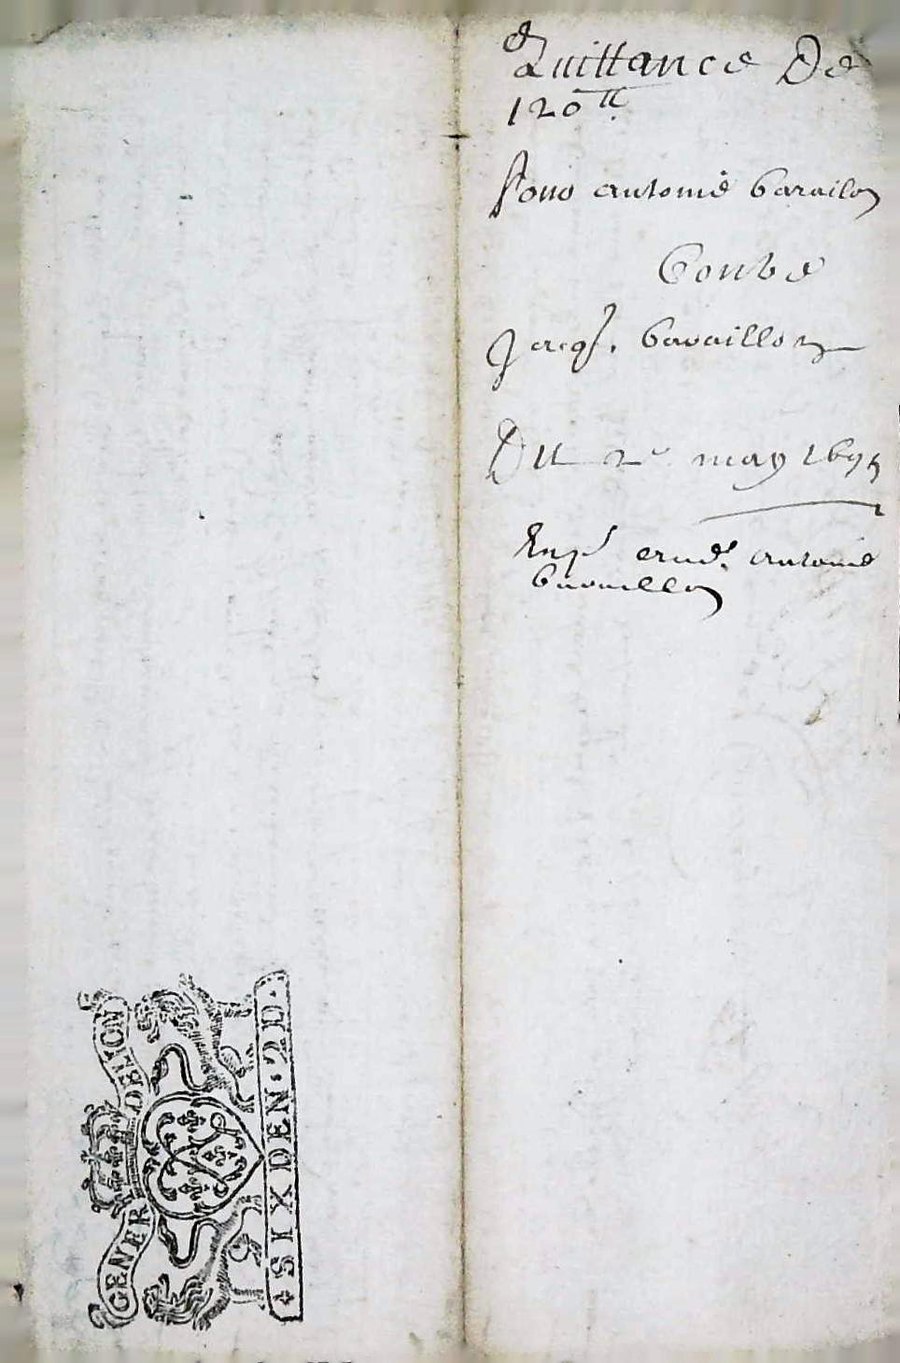 Quittance De
120ᵗᵗ
Pour antoine barailon
Contre
Jacq. bavaillon
Du 2ᵉ may 1695
antoine
bavaillon
GENER DELION
SIX DEN. 2D.